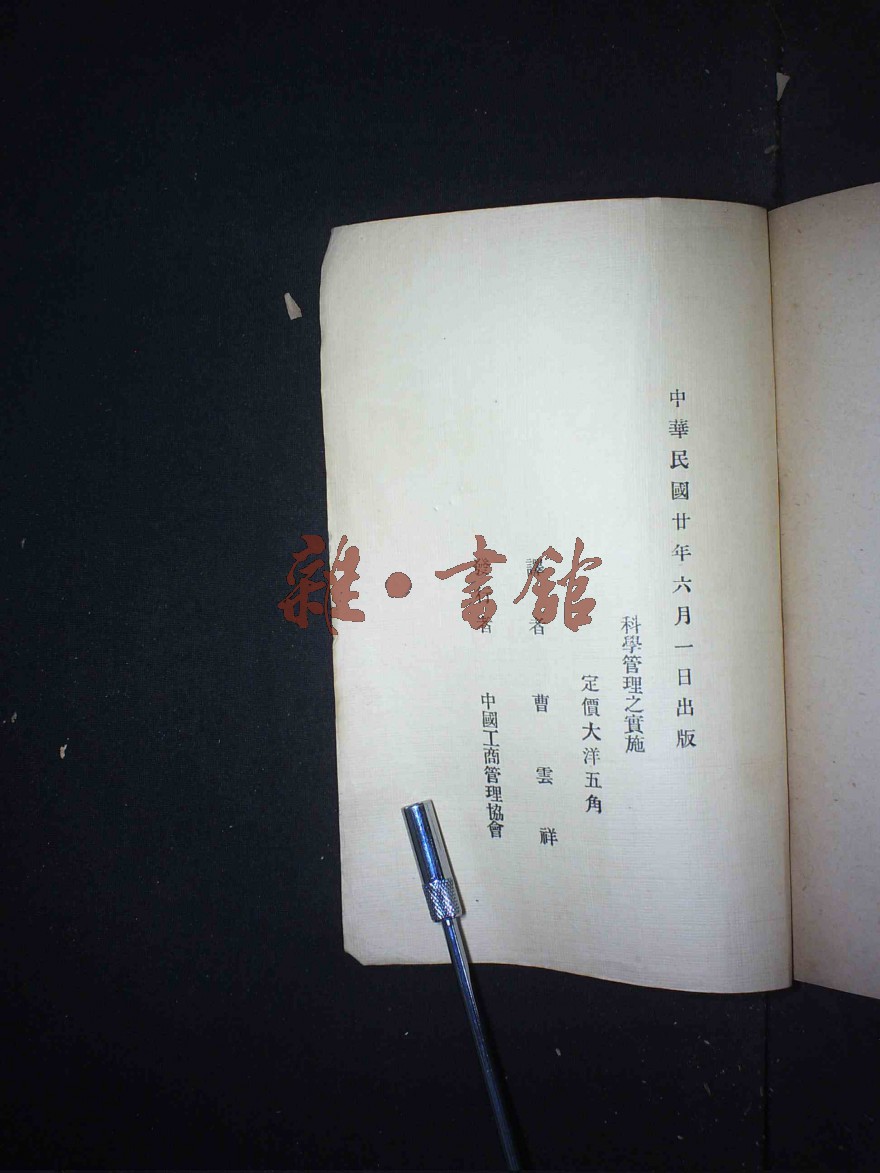 中華民國廿年六月一日出版
科學管理之實施
定價大洋五角
譯者 曹雲祥
發行者 中國工商管理協會
雜·書館